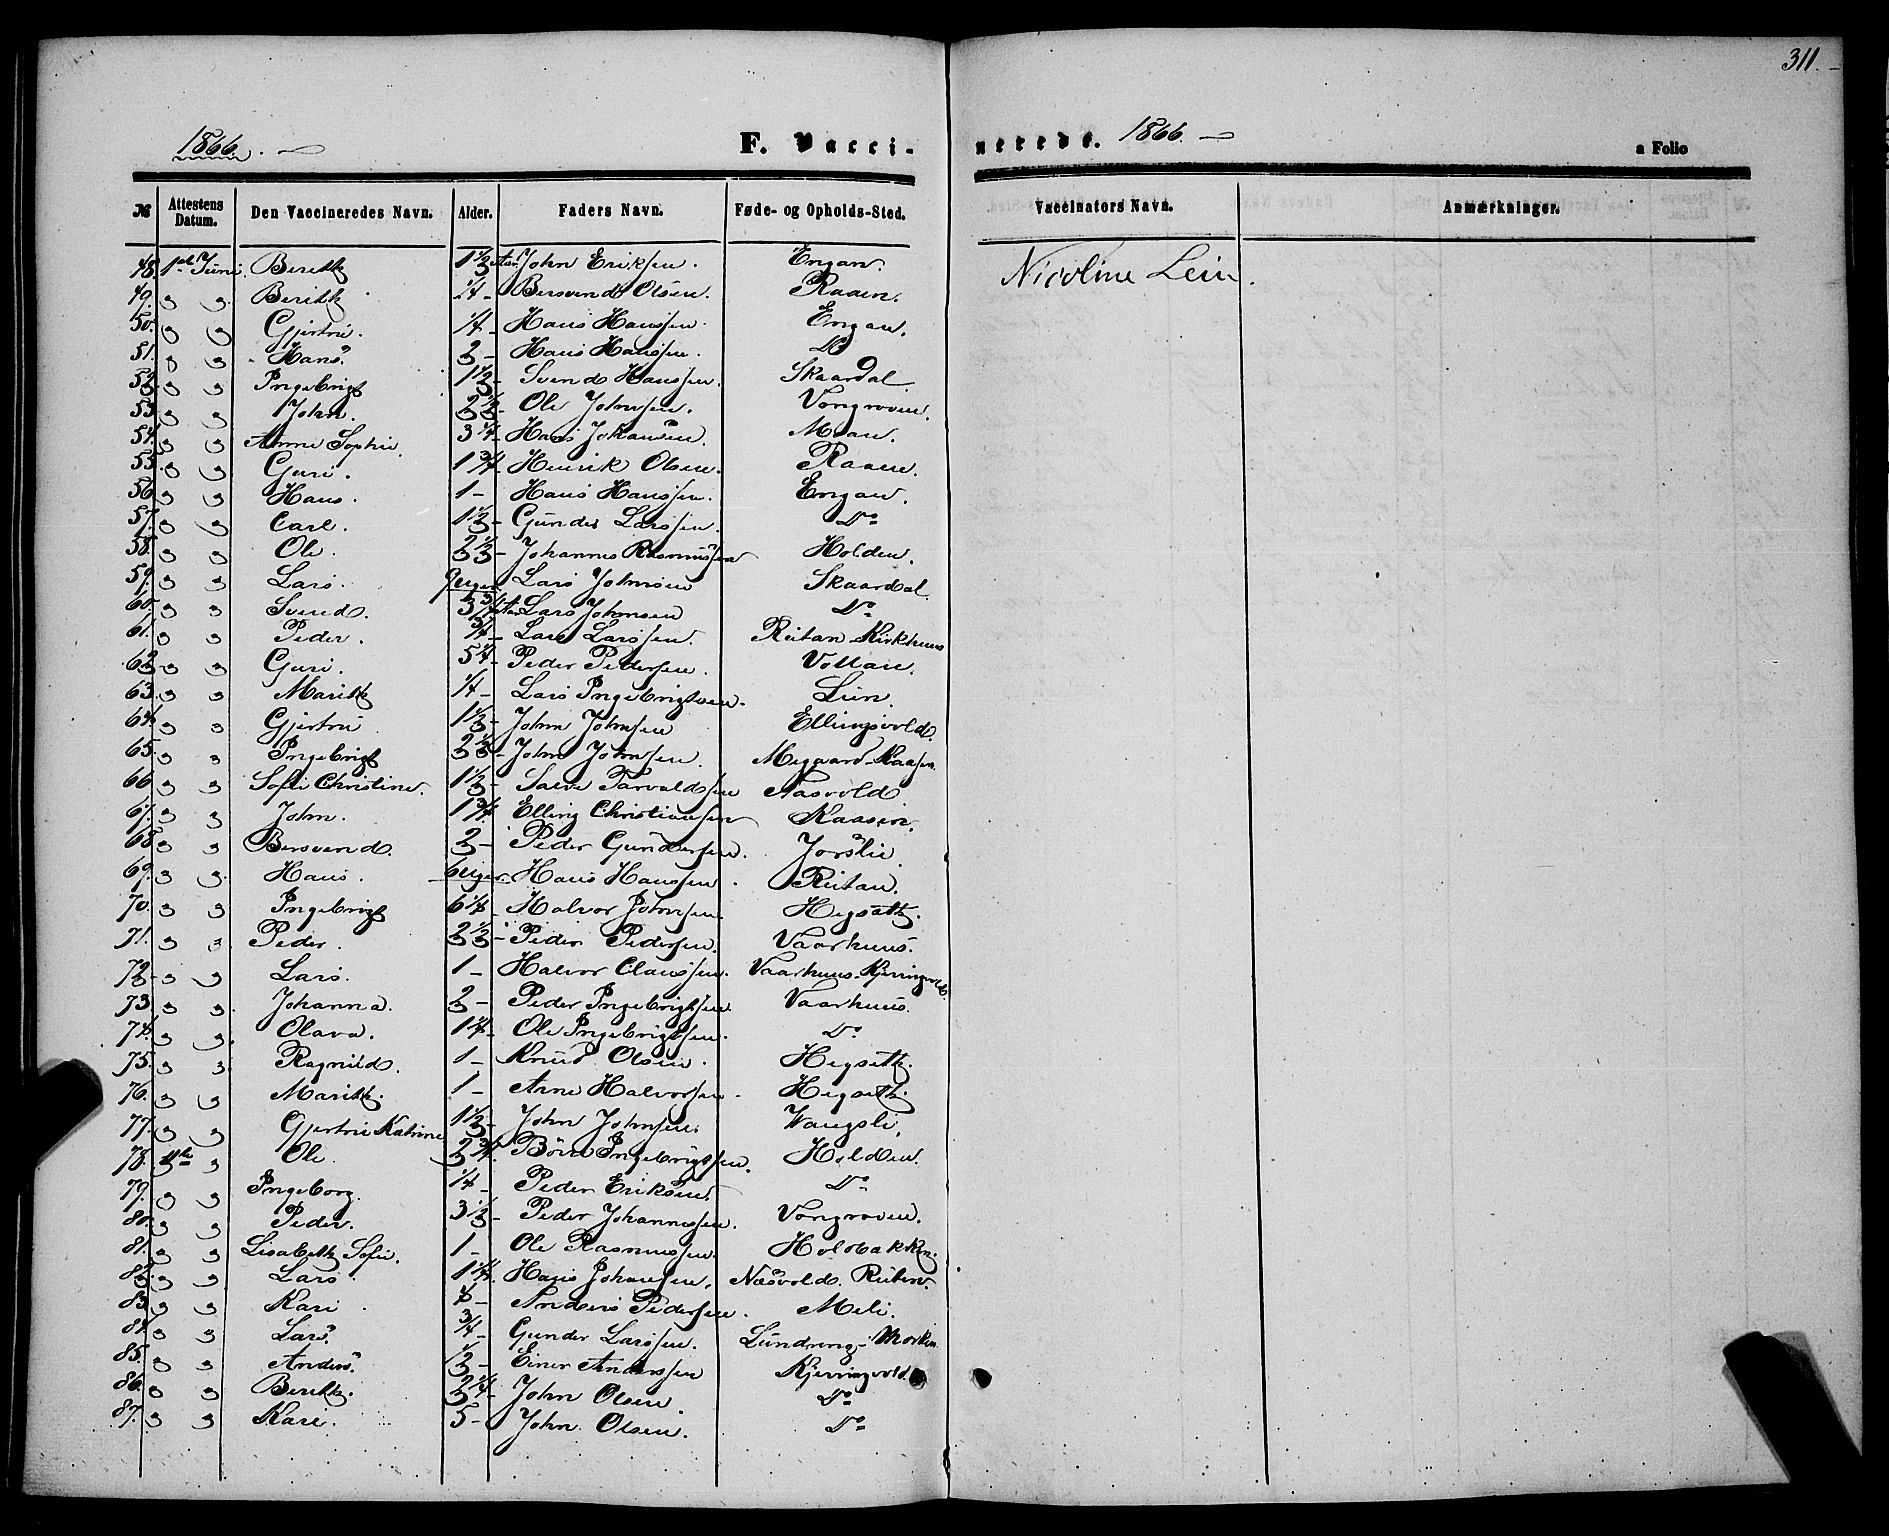 311.
1866. F. Vacci- nerede. 1866. a Folio
№ Attestens Datum. Den Vaccineredes Navn. Alder. Faders Navn. Føde- og Opholds-Sted. Vaccinators Navn. Anmærkninger.
48. 1ste Juni. Berith 1 1/2 John Eriksen. Engan. Nicoline Lein.
49. " " Berith 1/4 - Bersvend Olsen. Raaen.
50. " " Gjertru. 1/4 - Hans Hanssen. Engan.
51. " " Hans. 2 - Hans Hanssen. Do
52. " " Ingebrigt 1 1/2 - Svend Hanssen. Skaardal
53. " " John. 2 1/2 - Ole Johnsen. Vongroven.
54. " " Anne Sophie. 3 1/4 - Hans Johansen. Moan.
55. " " Guri. 1 3/4 - Henrik Olsen. Raaen.
56. " " Hans. 1 - Hans Hanssen. Engan.
57. " " Carl. 1 1/2 - Gunder Larssen. Do
58. " " Ole. 2 1/2 - Johannes Rasmussen Holden.
59. " " Lars. Lars Johnsen Skaardal.
60. " " Svend. 3 3/4 Lars Johnsen Do
61. " " Peder. 3/4 - Lars Larssen. Reitan Kirkhuus
62. " " Guri. 5 1/4 - Peder Pedersen. Vollan.
63. " " Marith 1/4 - Lars Ingebrigtsen. Lien.
64. " " Gjertru 1 1/2 - John Johnsen Ellingsvold.
65. " " Ingebrigt 2 1/2 - John Johnsen. Megaard-Kaasen.
66. " " Sofie Christine. 1 1/2 - Tarvaldsen Aasvold
67. " " John. 1 3/4 Elling Christiansen Kaasen.
68. " " Bersvend. 2 - Peder Gundersen. Jorslie.
69. " " Hans. 6 uger. Hans Hanssen. Reitan.
70. " " Ingebrigt 6 1/4 - Halvor Johnsen. Hegseth.
71. " " Peder. 2 1/2 - Peder Pedersen. Vaarhuus.
72. " " Lars. 1 - Halvor Clausen. Vaarhuus-Kjerringvold.
73. " " Johanna. 2 - Peder Ingebrigtsen. Vaarhuus.
74. " " Olava. 1 1/4 - Ole Ingebrigtsen. Do
75. " " Ragnild. 1 - Knud Olsen. Hegseth.
76. " " Marith. 1 - Arne Halvorsen. Hegseth.
77. " " Gjertru Katrine 1 1/2 - John Johnsen. Vangsli.
78. " Ole. 2 3/4 Ingebrigtsen. Holden.
79. " " Ingeborg. 1/4 - Peder Eriksen. Do
80. " " Peder. 3 1/2 - Peder Johannessen. Vongroven.
81. " " Lisabeth Sofie. 1 - Ole Rasmussen. Holbakken.
82. " " Lars. 1 1/4 - Hans Johnsen. Næsvold. Reitan.
83. " " Kari. Anders Pedersen. Meli.
84. " " Lars. 3/4 - Gunder Larssen. Lundreng-Morken
85. " " Anders. 1/2 - Einer Anderssen Kjerringvold.
86. " " Berith. 2 1/4 - John Olsen. Do
87. " " Kari. 5 - John Olsen. Do